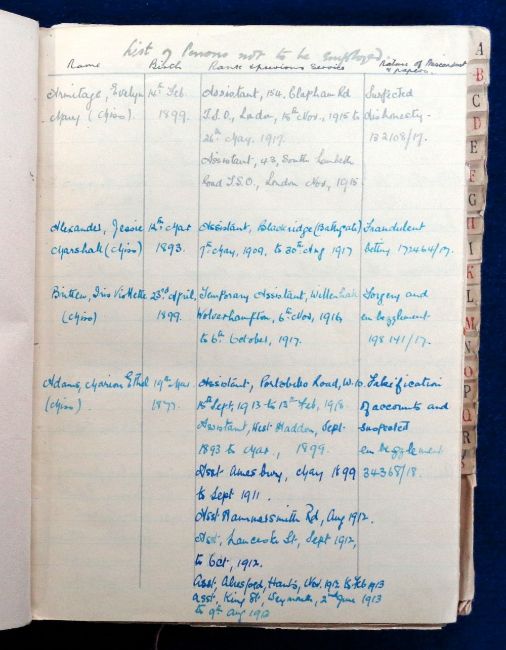 List of Persons not to be employed.
Name Birth Rank & previous service Nature of Misconduct
& papers.
Armitage, Evelyn 14th Feb. Assistant, 154, Clapham Rd Suspected
Mary (Miss) 1899. T.S.O., London, 15th Nov., 1915 to dishonesty.
26th May, 1917. 132108/17.
Assistant, 43, South Lambeth
Road T.S.O., London Nov, 1915
Alexander, Jessie 12th Mar Assistant, Blackridge (Bathgate) Fraudulent
Marshall (Miss) 1893. 7th May, 1909, to 30th Aug 1917 betting 172464/17.
Britten, Iris Violette 23rd April, Temporary Assistant, Willenhall Forgery and
(Miss) 1899. Wolverhampton, 6th Nov, 1916 embezzlement
to 6th October, 1917. 198141/17.
Adams, Marion Ethel 19th Mar. Assistant, Portobello Road, W.10. Falsification
(Miss) 1877. 15th Sept, 1913 to 13th Feb, 1918 of accounts and
Assistant, West Haddon, Sept suspected
1893 to Mar, 1899. embezzlement
Asst Amesbury, May 1899 34368/18.
to Sept 1911.
Asst Hammersmith Rd, Aug 1912.
Asst, Lancaster St, Sept 1912,
to Oct, 1912.
Asst, Alresford, Hants, Nov. 1912 to Feb 1913
Asst, King St, Weymouth, 2nd June 1913
to 9th Aug 1913
A
B
C
D
E
F
G
H
I
K
L
M
N
O
P
Q
R